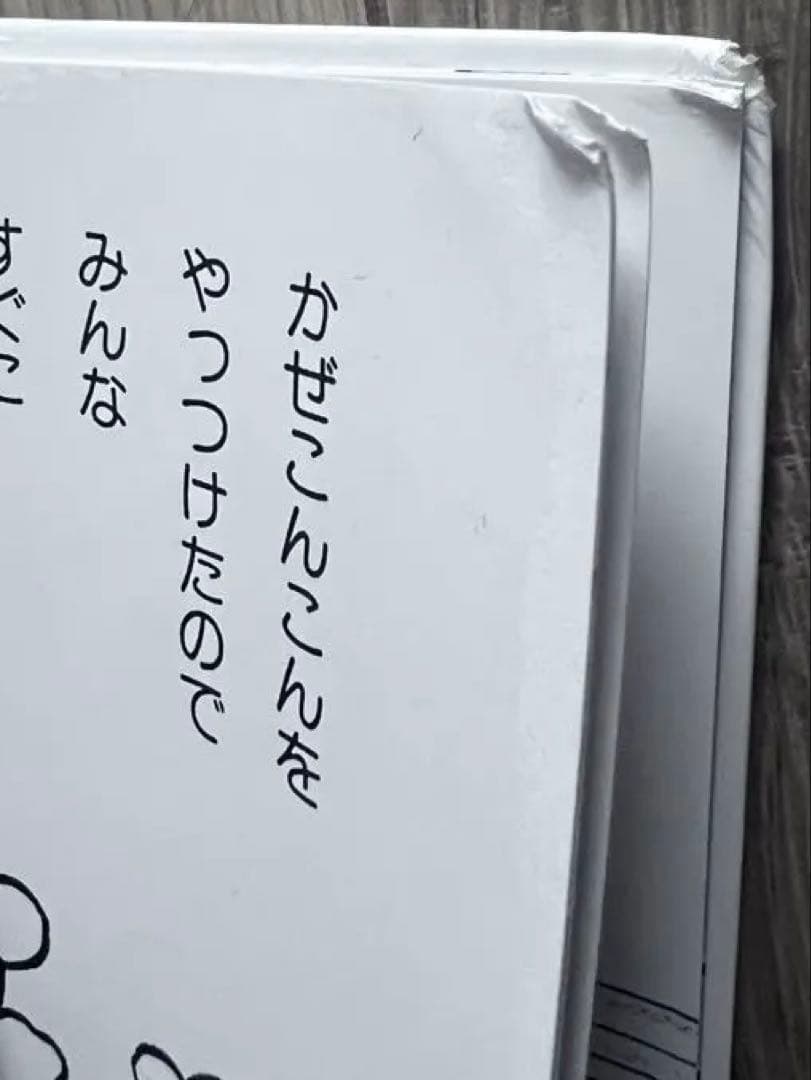 かぜこんこんを
やっつけたので
みんな
すぐに